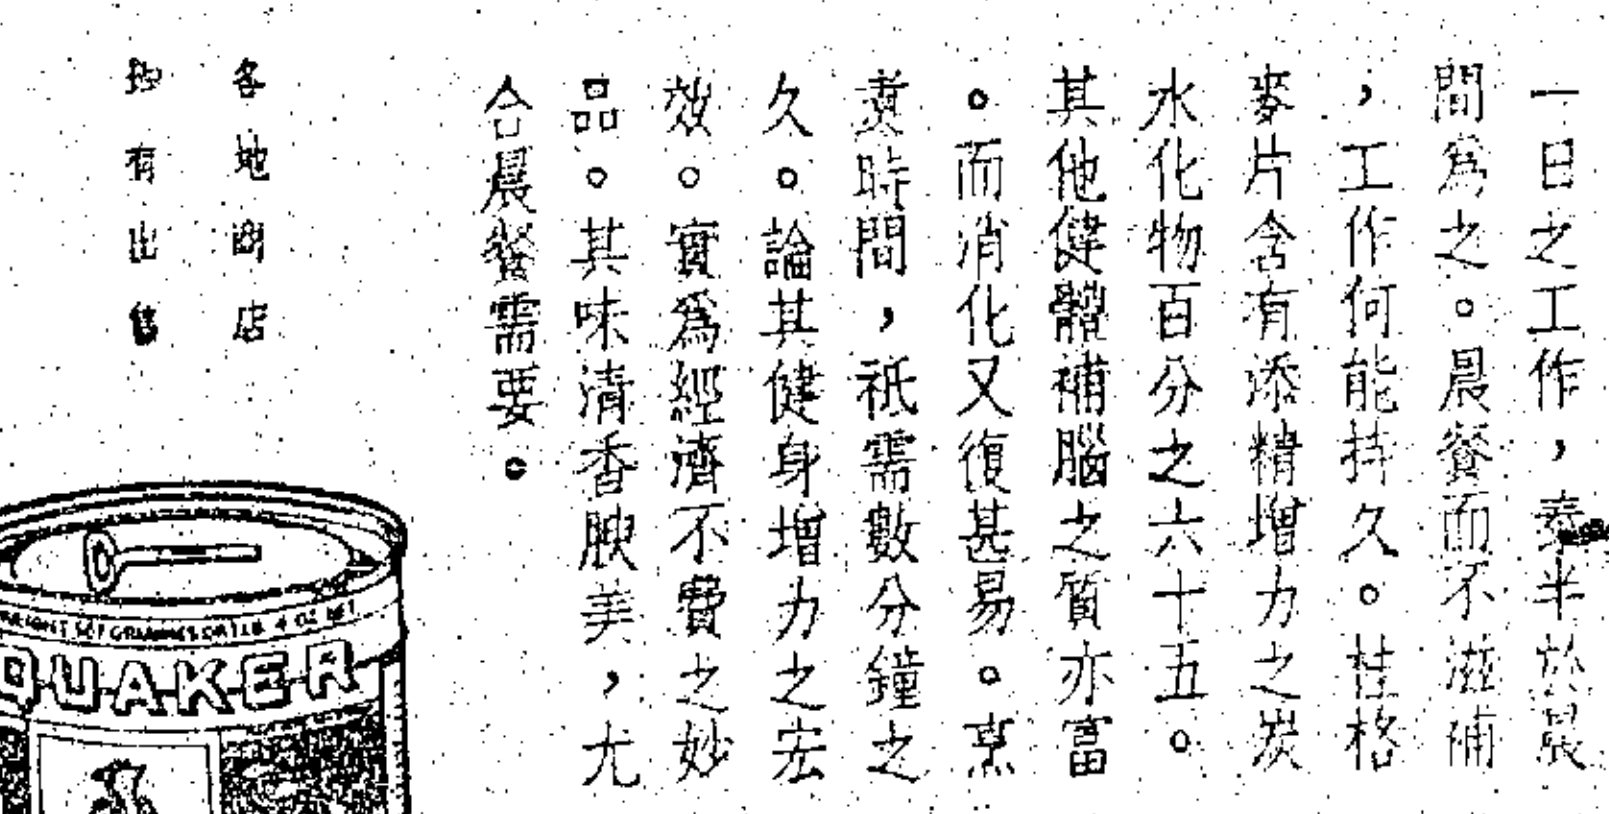 一日之工作，泰半於晨
間爲之。晨餐而不滋補
，工作何能持久。桂格
麥片含有添精增力之炭
水化物百分之六十五。
其他健體補腦之質亦富
。而消化又復甚易。烹
煑時間，祇需數分鐘之
久。論其健身增力之宏
效。實爲經濟不費之妙
品。其味清香腴美，尤
合晨餐需要。
各地商店
均有出售
WEIGHT 567 GRAMMES OR 1 LB. 4 OZ NET
QUAKER